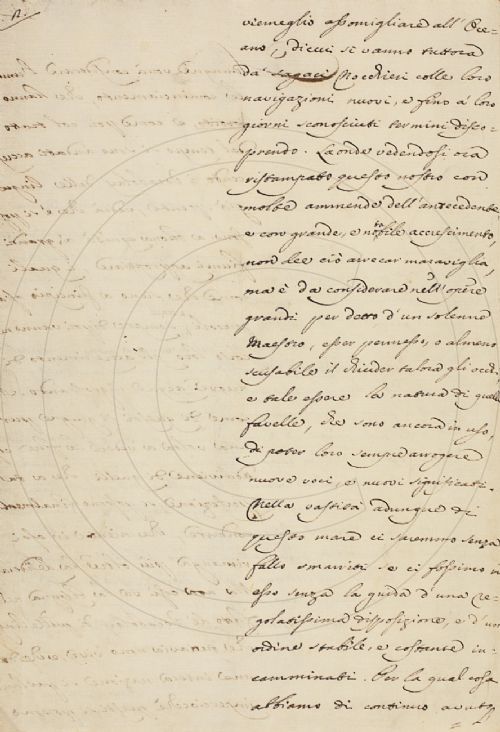 viemeglio assomigliare all' Oce-
ano, i dicui si vanno tuttora
da' sagaci Nocchieri colle loro
navigazioni nuovi, e fino a' loro
giorni sconosciuti termini disco-
prendo. Laonde vedendosi ora
ristampato questo nostro con
molte ammende dell' antecedente
e con grande, e nobile accrescimento
non dee ciò arrecar maraviglia,
ma è da considerare nell' opere
grandi per detto d' un solenne
Maestro, esser permesso, o almeno
scusabile il chiuder talora gli occhi
e tale essere la natura di quelle
favelle, che sono ancora in uso,
di poter loro sempre arrogere
nuove voci, e nuovi significati.
Nella vastità adunque di
questo mare ci saremmo senza
fallo smarriti se ci fossimo in
esso senza la guida d' una re-
golatissima disposizione, e d' un
ordine stabile, e costante in-
camminati. Per la qual cosa
abbiamo di continuo avuto